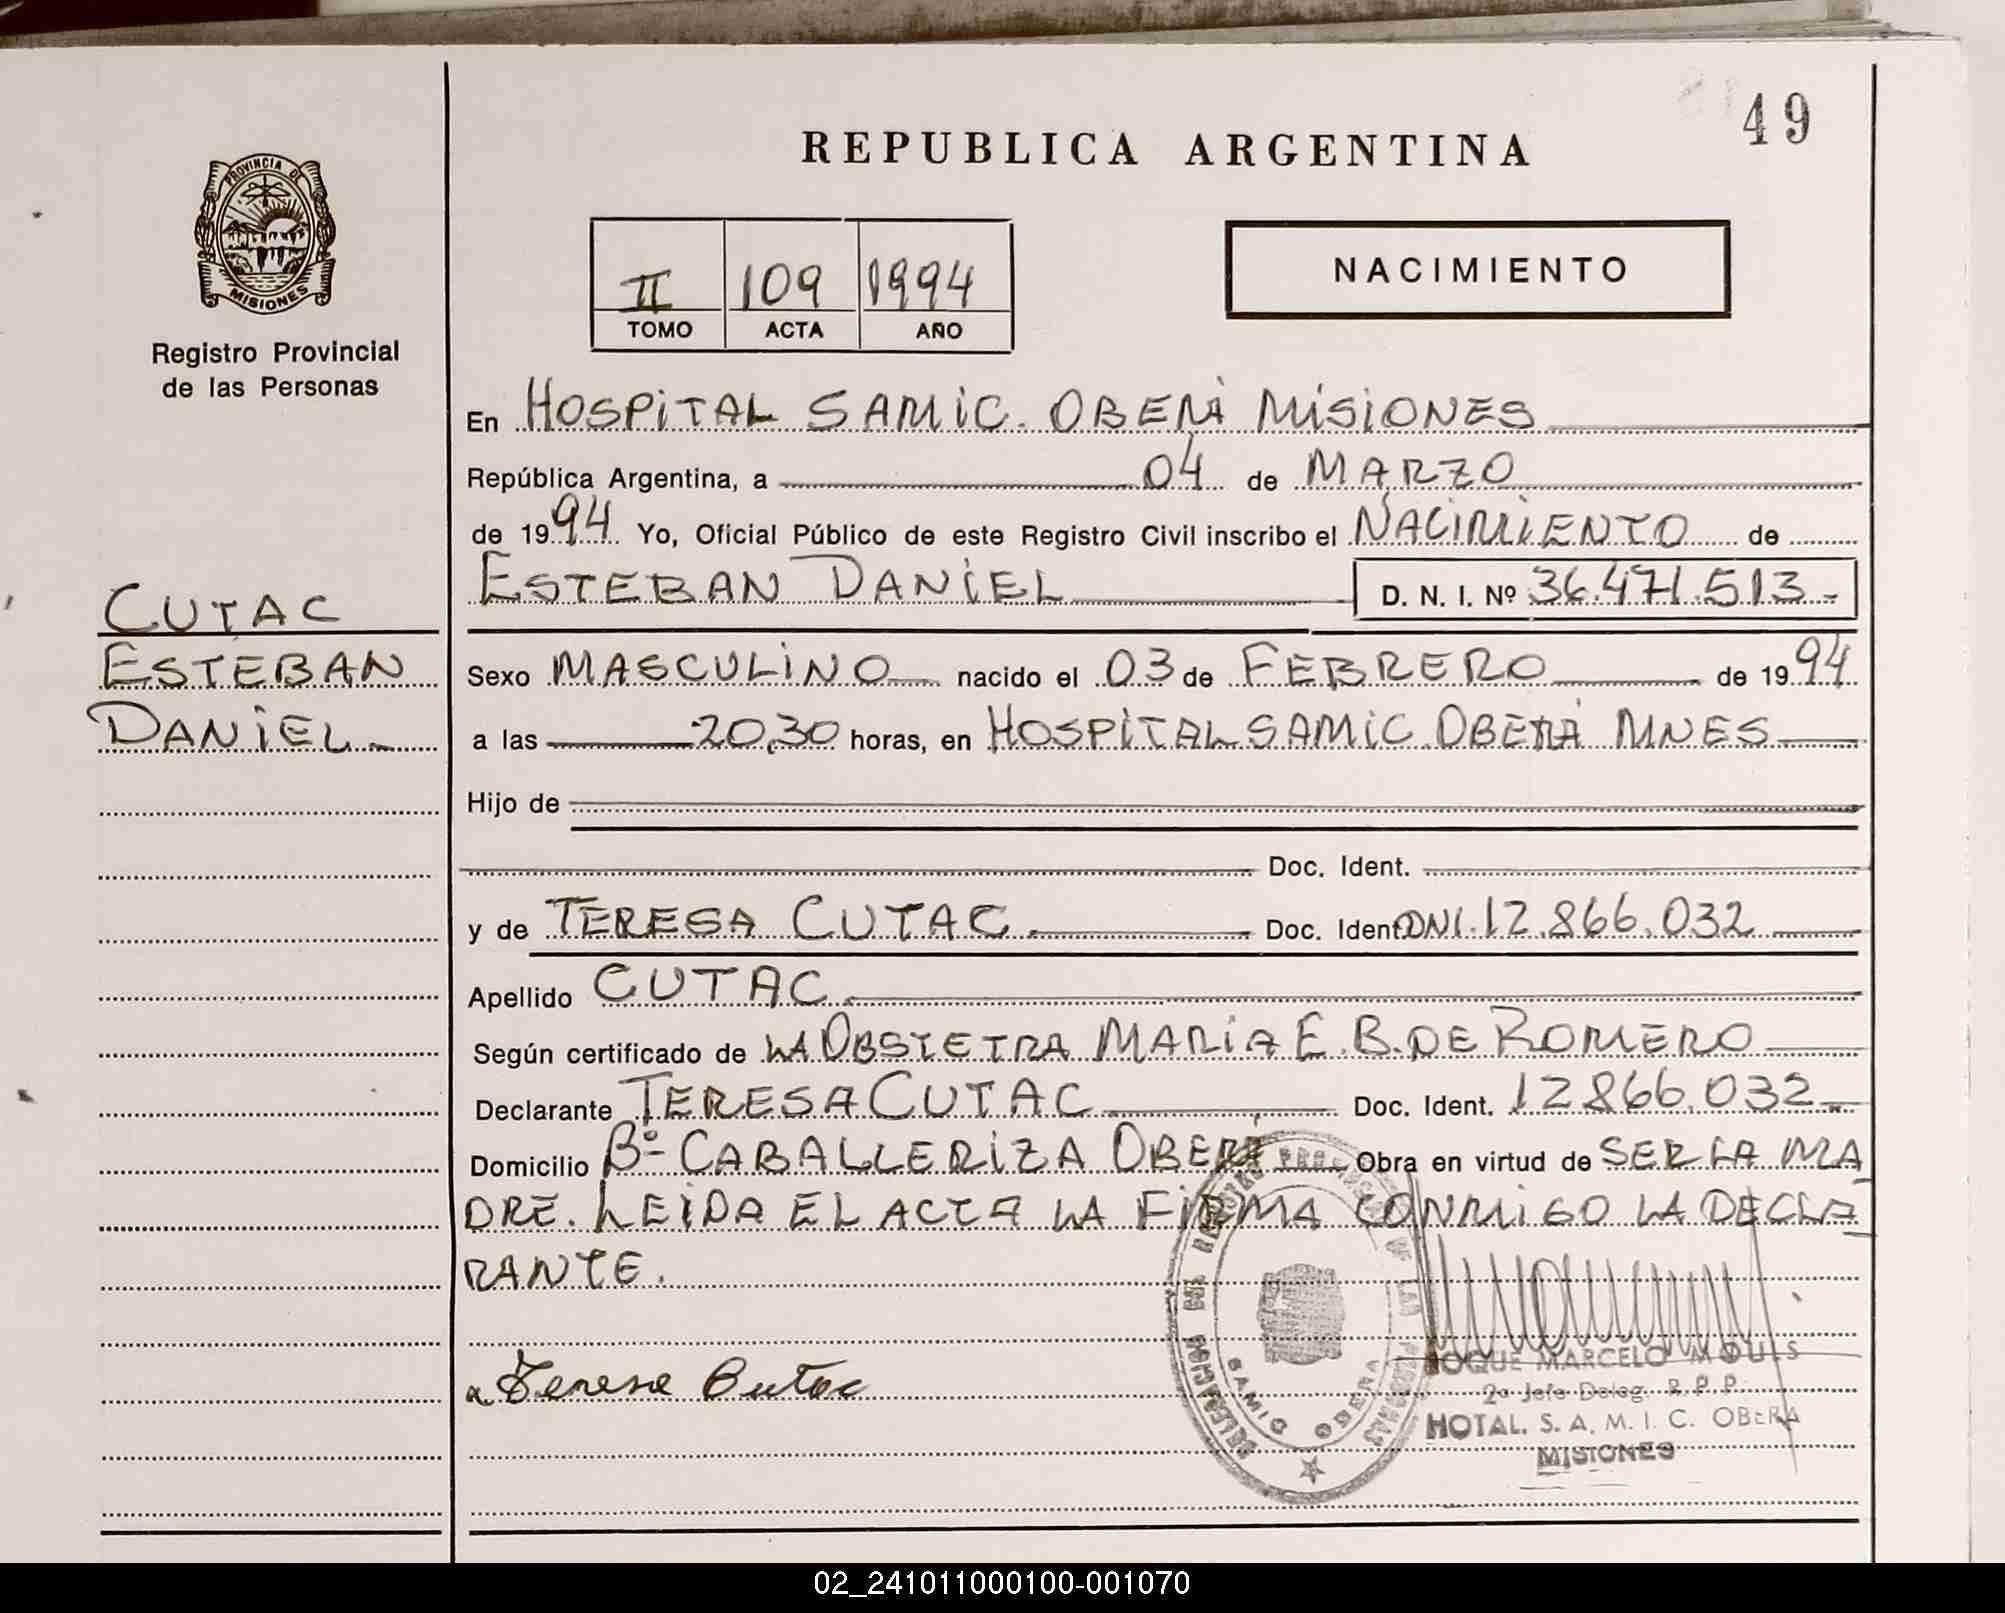 49
REPUBLICA ARGENTINA
PROVINCIA DE
MISIONES
Registro Provincial
de las Personas
II 109 1994
TOMO ACTA AÑO
NACIMIENTO
En HOSPITAL SAMIC. OBERÁ MISIONES
República Argentina, a 04 de MARZO
de 1994 Yo, Oficial Público de este Registro Civil inscribo el NACIMIENTO de
ESTEBAN DANIEL D. N. I. Nº 36.471.513.-
CUTAC
ESTEBAN
DANIEL
Sexo MASCULINO nacido el 03 de FEBRERO de 1994
a las 20,30 horas, en HOSPITAL SAMIC OBERÁ MNES
Hijo de
Doc. Ident.
y de TERESA CUTAC. Doc. Ident DNI.12.866.032
Apellido CUTAC.
Según certificado de LA OBSTETRA MARIA E. B. DE ROMERO
Declarante TERESA CUTAC Doc. Ident. 12866.032
Domicilio Bº CABALLERIZA OBERÁ Obra en virtud de SER LA MA
DRE. LEIDA EL ACTA LA FIRMA CONMIGO LA DECLA
RANTE.
Teresa Cutac
DELEGACION DEL REGISTRO PROVINCIAL DE LAS PERSONAS
SAMIC OBERA
ROQUE MARCELO MOULS
2º Jefe Deleg. R. P. P.
HOTAL. S. A. M. I. C. OBERA
MISIONES
02_241011000100-001070